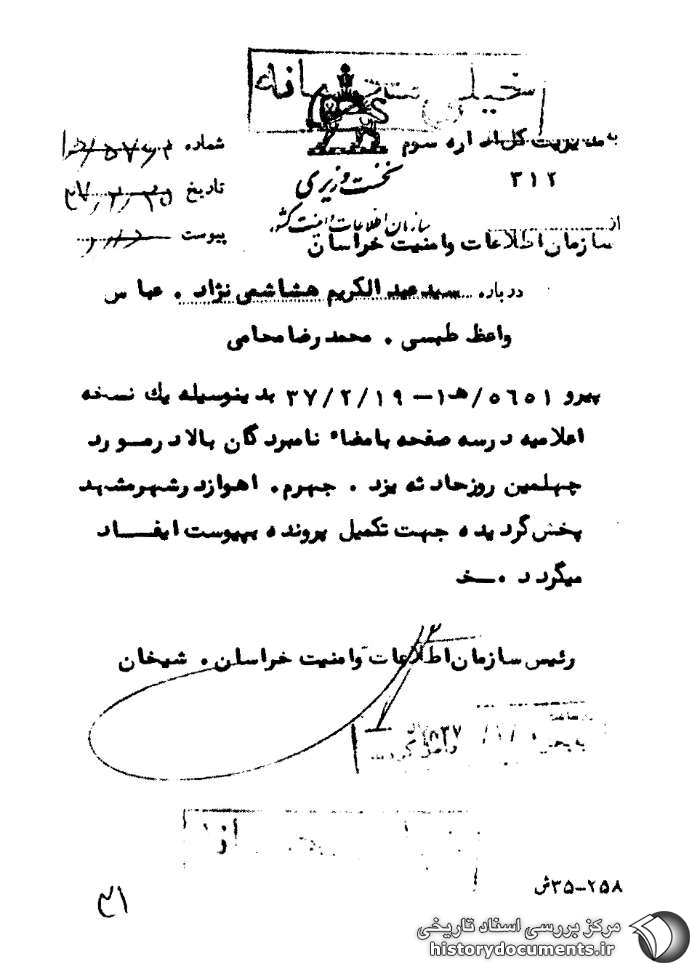 خیلی محرمانه
به مدیریت کل اداره سوم
۳۱۲
شماره
نخست وزیری
تاریخ
سازمان اطلاعات و امنیت کشور
از
پیوست
سازمان اطلاعات وامنیت خراسان
درباره سیدعبدالکریم هشاشمی نژاد . عباس
واعظ طبسی . محمدرضا محامی
پیرو ۵٦۵۱/هـ۱ - ۳۷/۲/۱۹ بدینوسیله یک نسخه
اعلامیه درسه صفحه بامضاء نامبردگان بالا درمورد
چهلمین روزحادثه یزد . جهرم . اهوازدرشهرمشهد
پخش گردیده جهت تکمیل پرونده بپیوست ایفاد
میگردد . خ
رئیس سازمان اطلاعات وامنیت خراسان . شیخان
۳۵-۲۵۸ش
۳۱
مرکز بررسی اسناد تاریخی
historydocuments.ir